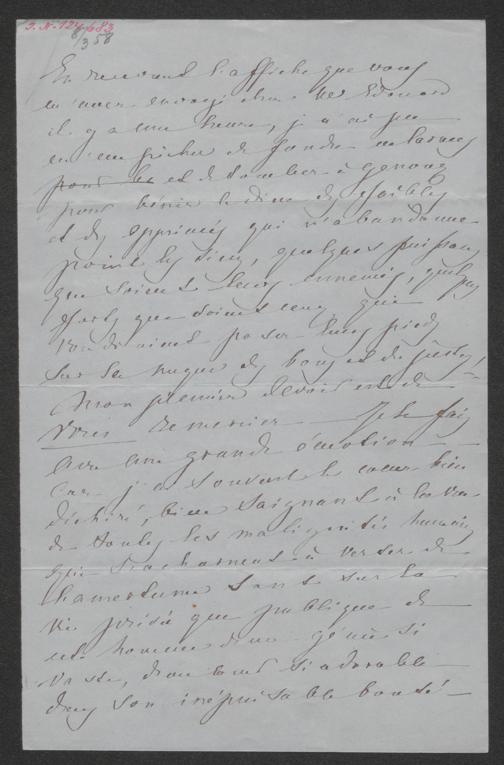 J.N. 124,683
8/3 58
En recevant l'affiche que vous
m'avez envoyé chez Mr Edouard
il y a une heure, je n'ai pu
m'empêcher de fondre en larmes
pour le et de tomber à genoux
pour bénir le dieu des faibles
et des opprimés qui n'abandonne
point les siens, quelques puissans
que soient leurs ennemis, quelques
forts que soient ceux qui
voudraient poser leurs pieds
sur la nuque des bons et des justes,
Mon premier devoir est de
vous remercier — Je le fais
avec une grande émotion —
car j'ai souvent le cœur bien
déchiré, bien saignant à la vue
de toutes les malignités humaines
qui s'acharnent à verser de
l'amertume tant sur la
vie privée que publique de
cet homme d'un génie si
vaste, d'un cœur si adorable
dans son inépuisable bonté —